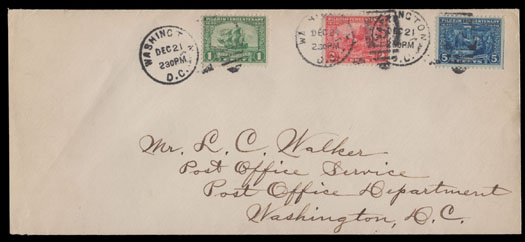 WASHINGTON
DEC 21
230PM
D.C.
PILGRIM TERCENTENARY
1 1
WASHINGTON
DEC 21
230PM
D.C.
PILGRIM TERCENTENARY
WASHINGTON
DEC 21
230PM
D.C.
PILGRIM TERCENTENARY
5 5
Mr. L. C. Walker
Post Office Service
Post Office Department
Washington, D.C.